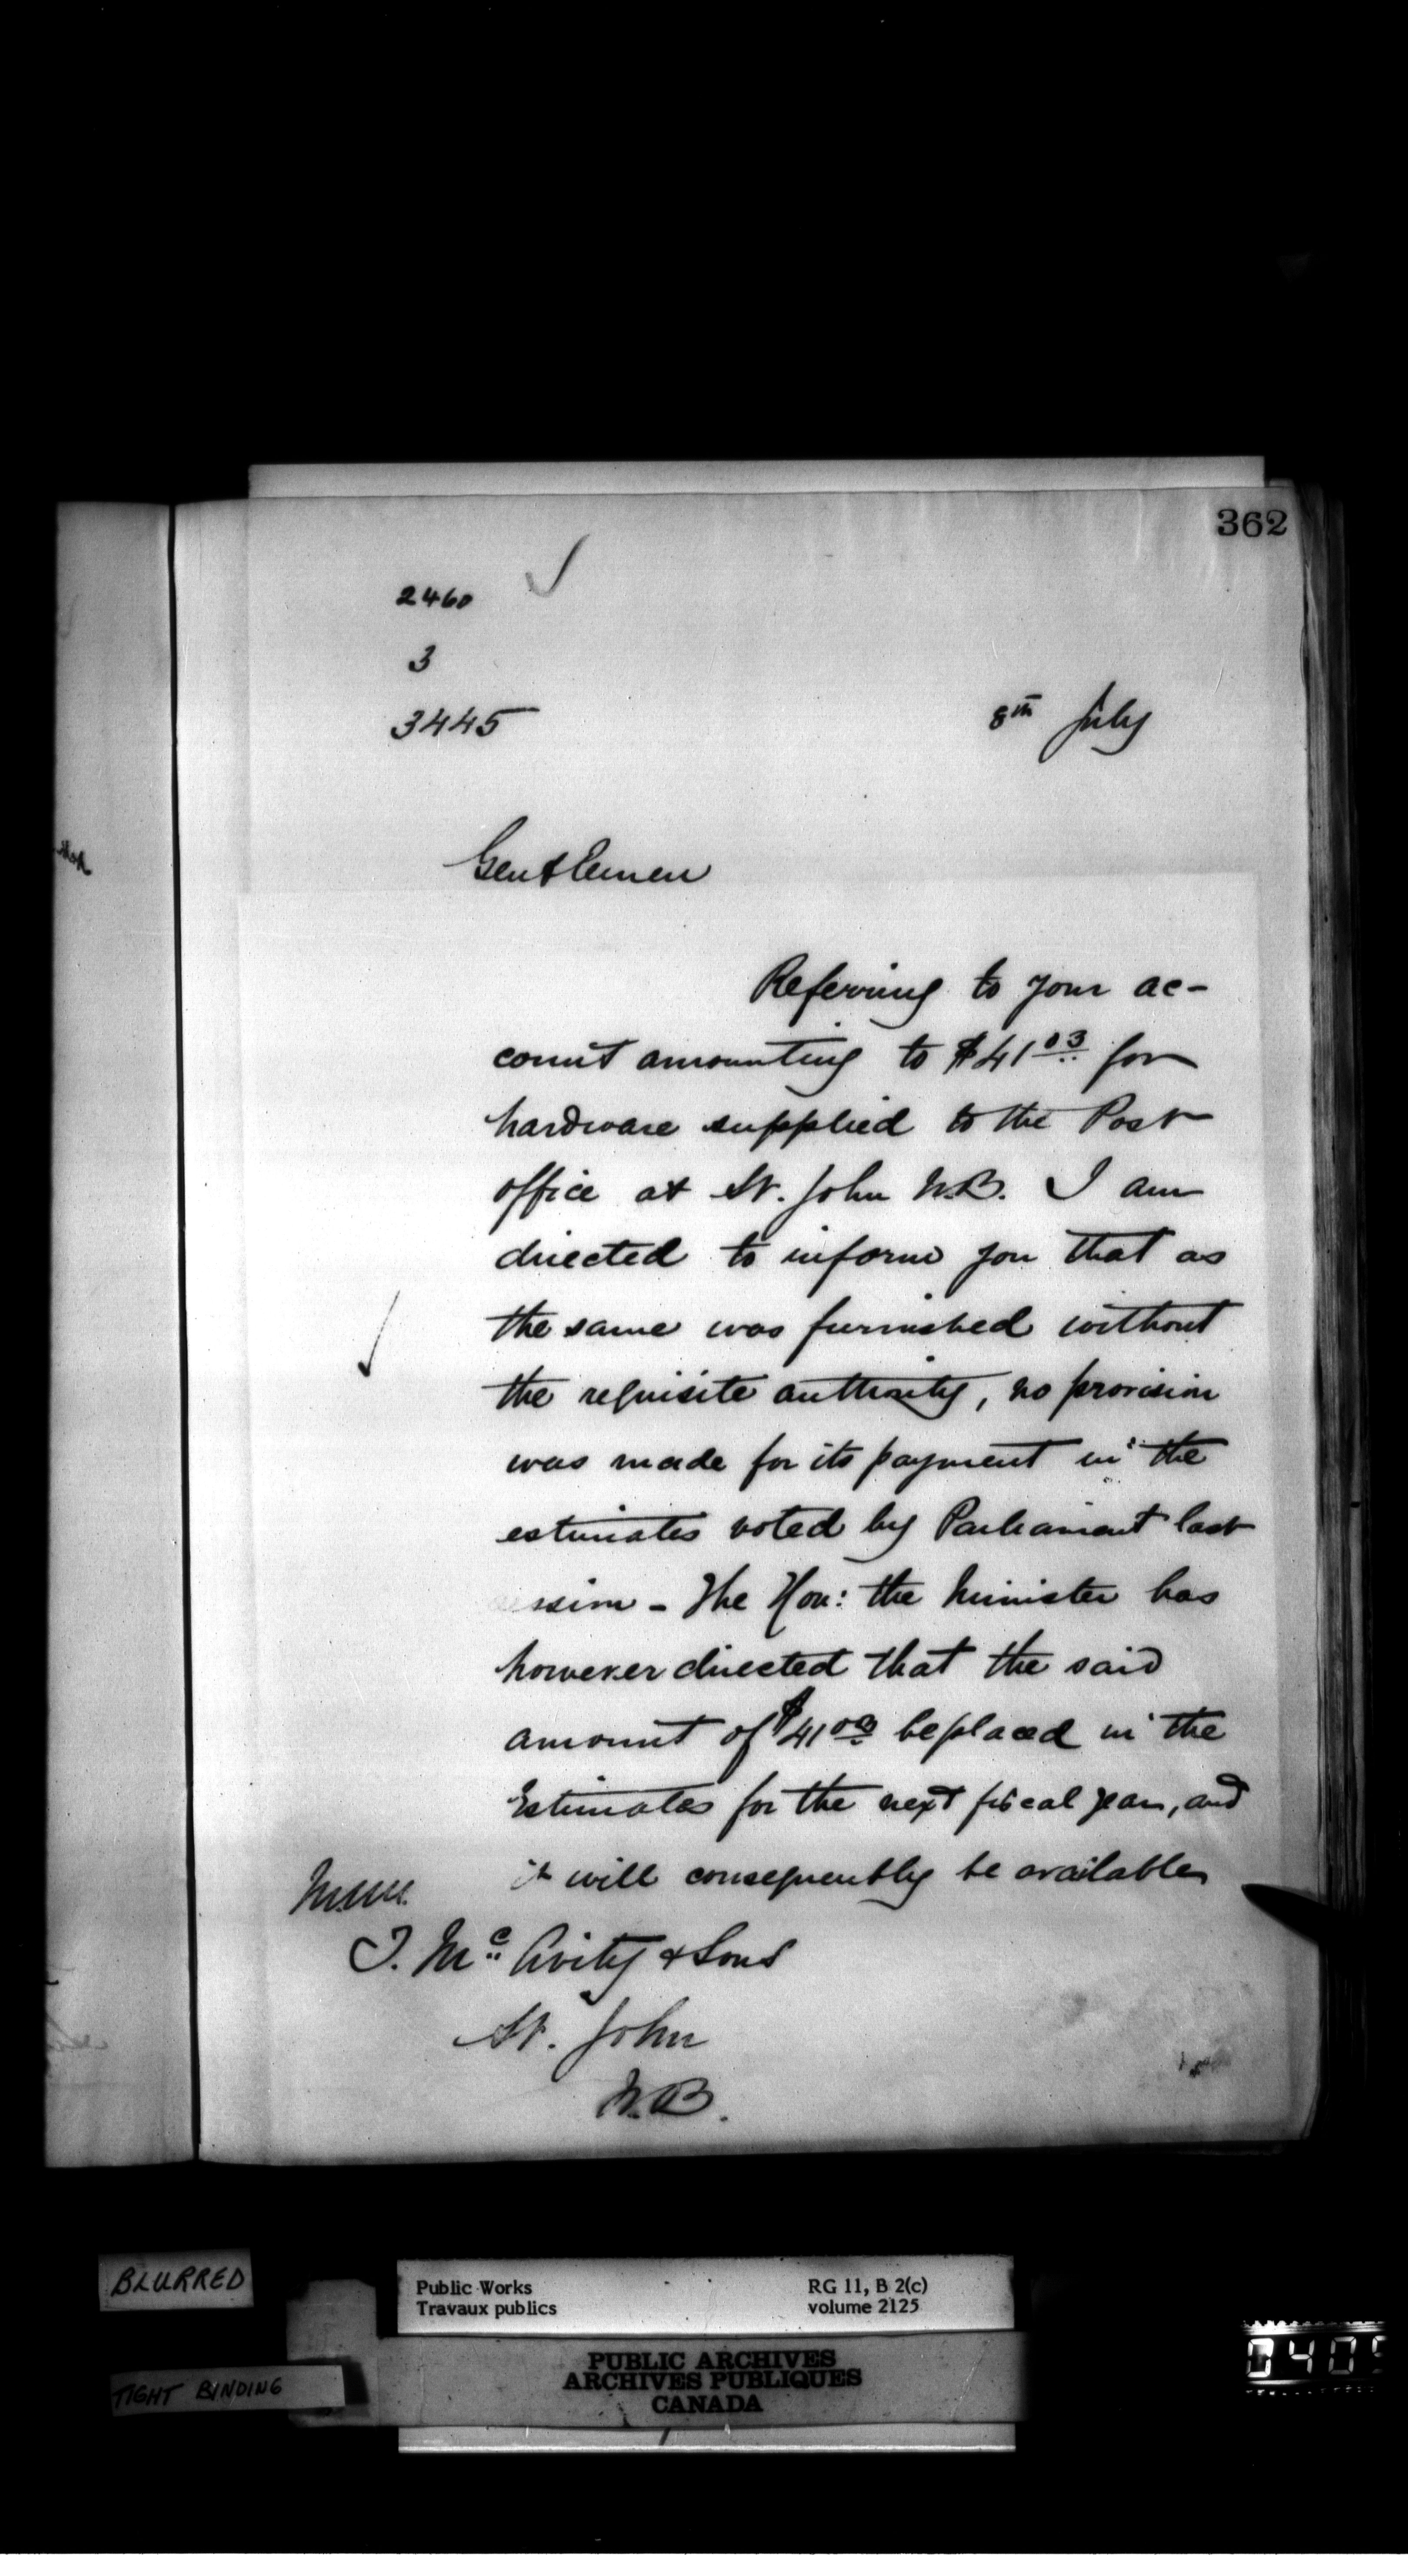 362
2460
3
3445
8th July
Gentlemen
Referring to your ac-
count amounting to $41 03 for
hardware supplied to the Post
office at St. John N.B. I am
directed to inform you that as
the same was furnished without
the requisite authority, no provision
was made for its payment in the
estimates voted by Parliament last
session - The Hon: the Minister has
however directed that the said
amount of $41 03 be placed in the
Estimates for the next fiscal year, and
it will consequently be available
T. Mc Avity & Sons
St. John
N.B.
BLURRED
TIGHT BINDING
Public Works
Travaux publics
RG 11, B 2(c)
volume 2125
PUBLIC ARCHIVES
ARCHIVES PUBLIQUES
CANADA